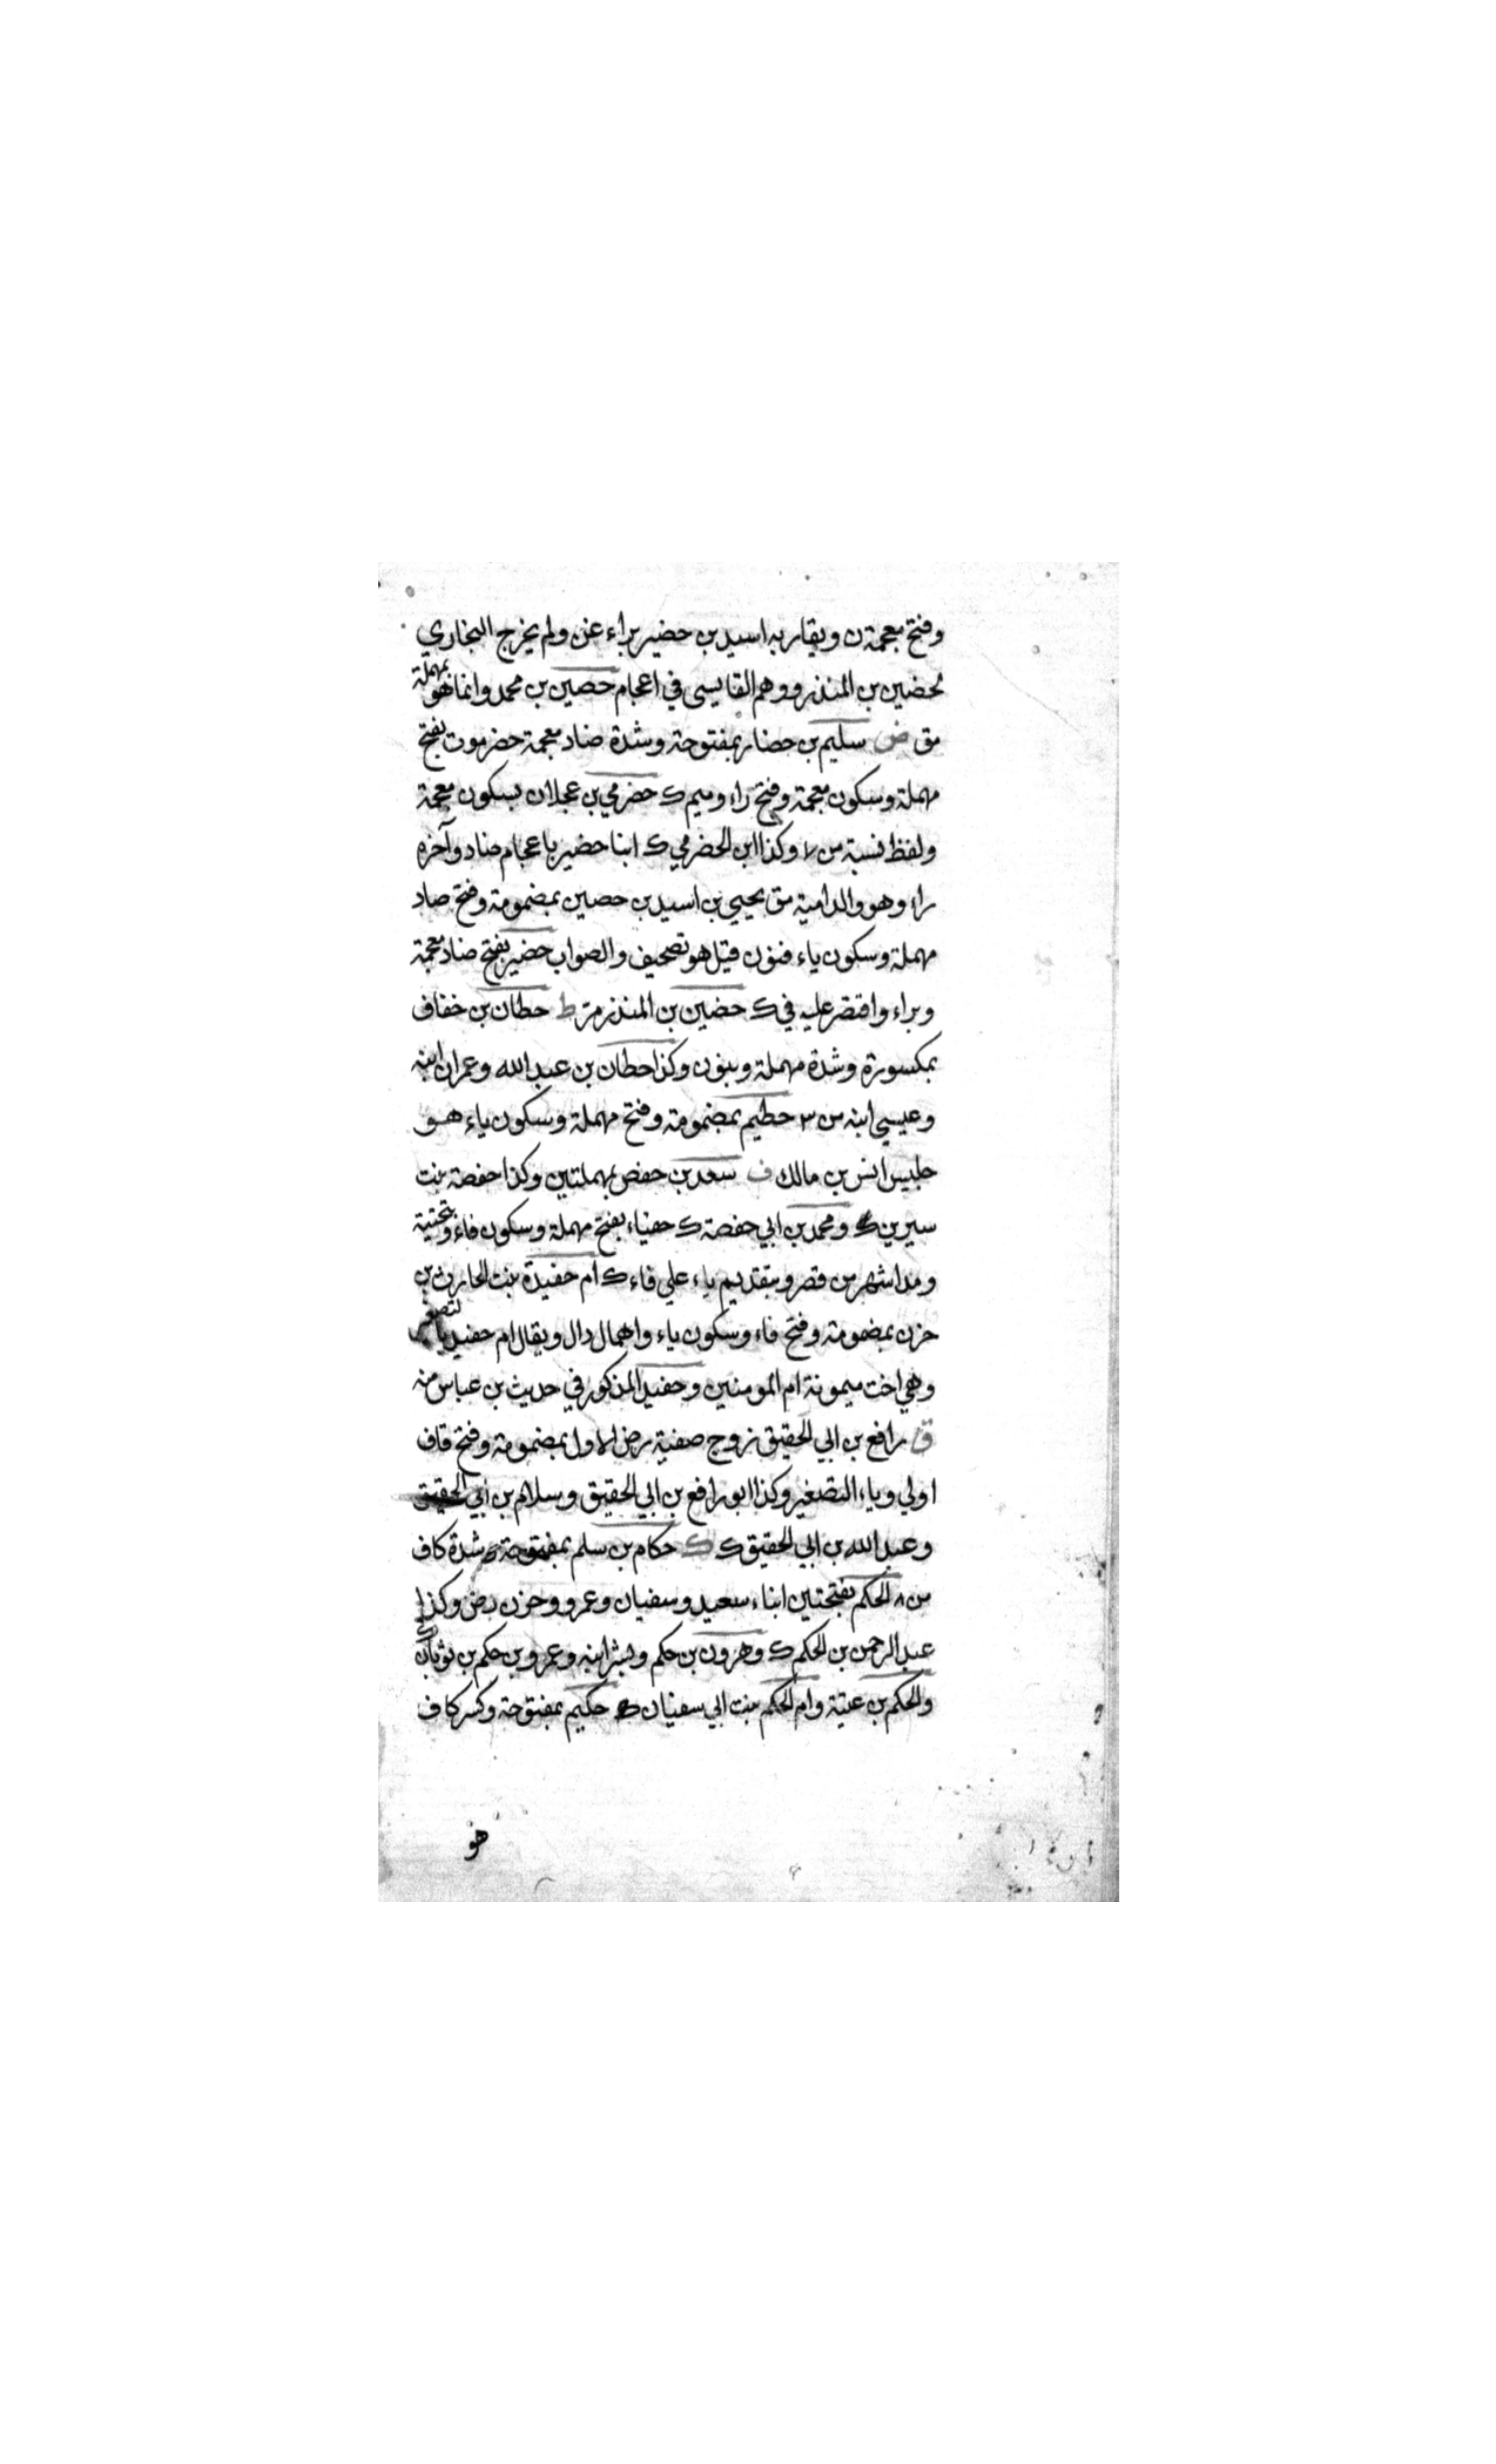 وفتح معجمة ن ويقاربه اسيد بن حضير براء عن ولم يخرج البخاري
لحضين بن المنذر ووهم القابسي في اعجام حصين بن محمد وانما هو بمهملة
مق ض سليم بن حضار بمفتوحة وشدة ضاد معجمة حضرموت بفتح
مهملة وسكون معجمة وفتح راء وميم ك حضرمي بن عجلان بسكون معجمة
ولفظ نسبة س ٧ وكذا ابن الحضرمي ك ابنا حضير باعجام ضاد وآخره
راء وهو والد امية مق يحيي بن اسيد بن حصين بمضمومة وفتح صاد
مهملة وسكون ياء فنون قيل هو تصحيف والصواب حضير بفتح ضاد معجمة
وبراء واقتصر عليه في ك حضين بن المنذر مر ط حطان بن خفاف
بمكسورة وشدة مهملة وبنون وكذا حطان بن عبد الله وعمران ابنه
وعيسي ابنه س ٣ حطيم بمضمومة وفتح مهملة وسكون ياء هو
جليس انس بن مالك ف سعد بن حفص بمهملتين وكذا حفصة بنت
سيرين ك ومحمد بن ابي حفصة ك حفياء بفتح مهملة وسكون فاء وبتحتية
ومد اشهر من قصر وبتقديم ياء علي فاء ك ام حفيدة بنت الحارث بن
حزن بمضمومة وفتح فاء وسكون ياء واهمال دال ويقال ام حفيد
وهي اخت ميمونة ام المومنين وحفيد المذكور في حديث بن عباس منه
ق رافع بن ابي الحقيق زوج صفية رض الاول بمضمومة وفتح قاف
اولي وياء التصغير وكذا ابو رافع بن ابي الحقيق وسلام بن ابي الحقيق
وعبد الله بن ابي الحقيق ك ك حكام بن سلم بمفتوحة وشدة كاف
س ٨ الحكم بفتحتين ابناء سعيد وسفيان وعمرو وحزن رض وكذا
عبد الرحمن بن الحكم ك وهرون بن حكم وبشر ابنه وعمرو بن حكم بن ثوبان
والحكم بن عتيبة وام الحكم بنت ابي سفيان ك حكيم بمفتوحة وكسر كاف
هو